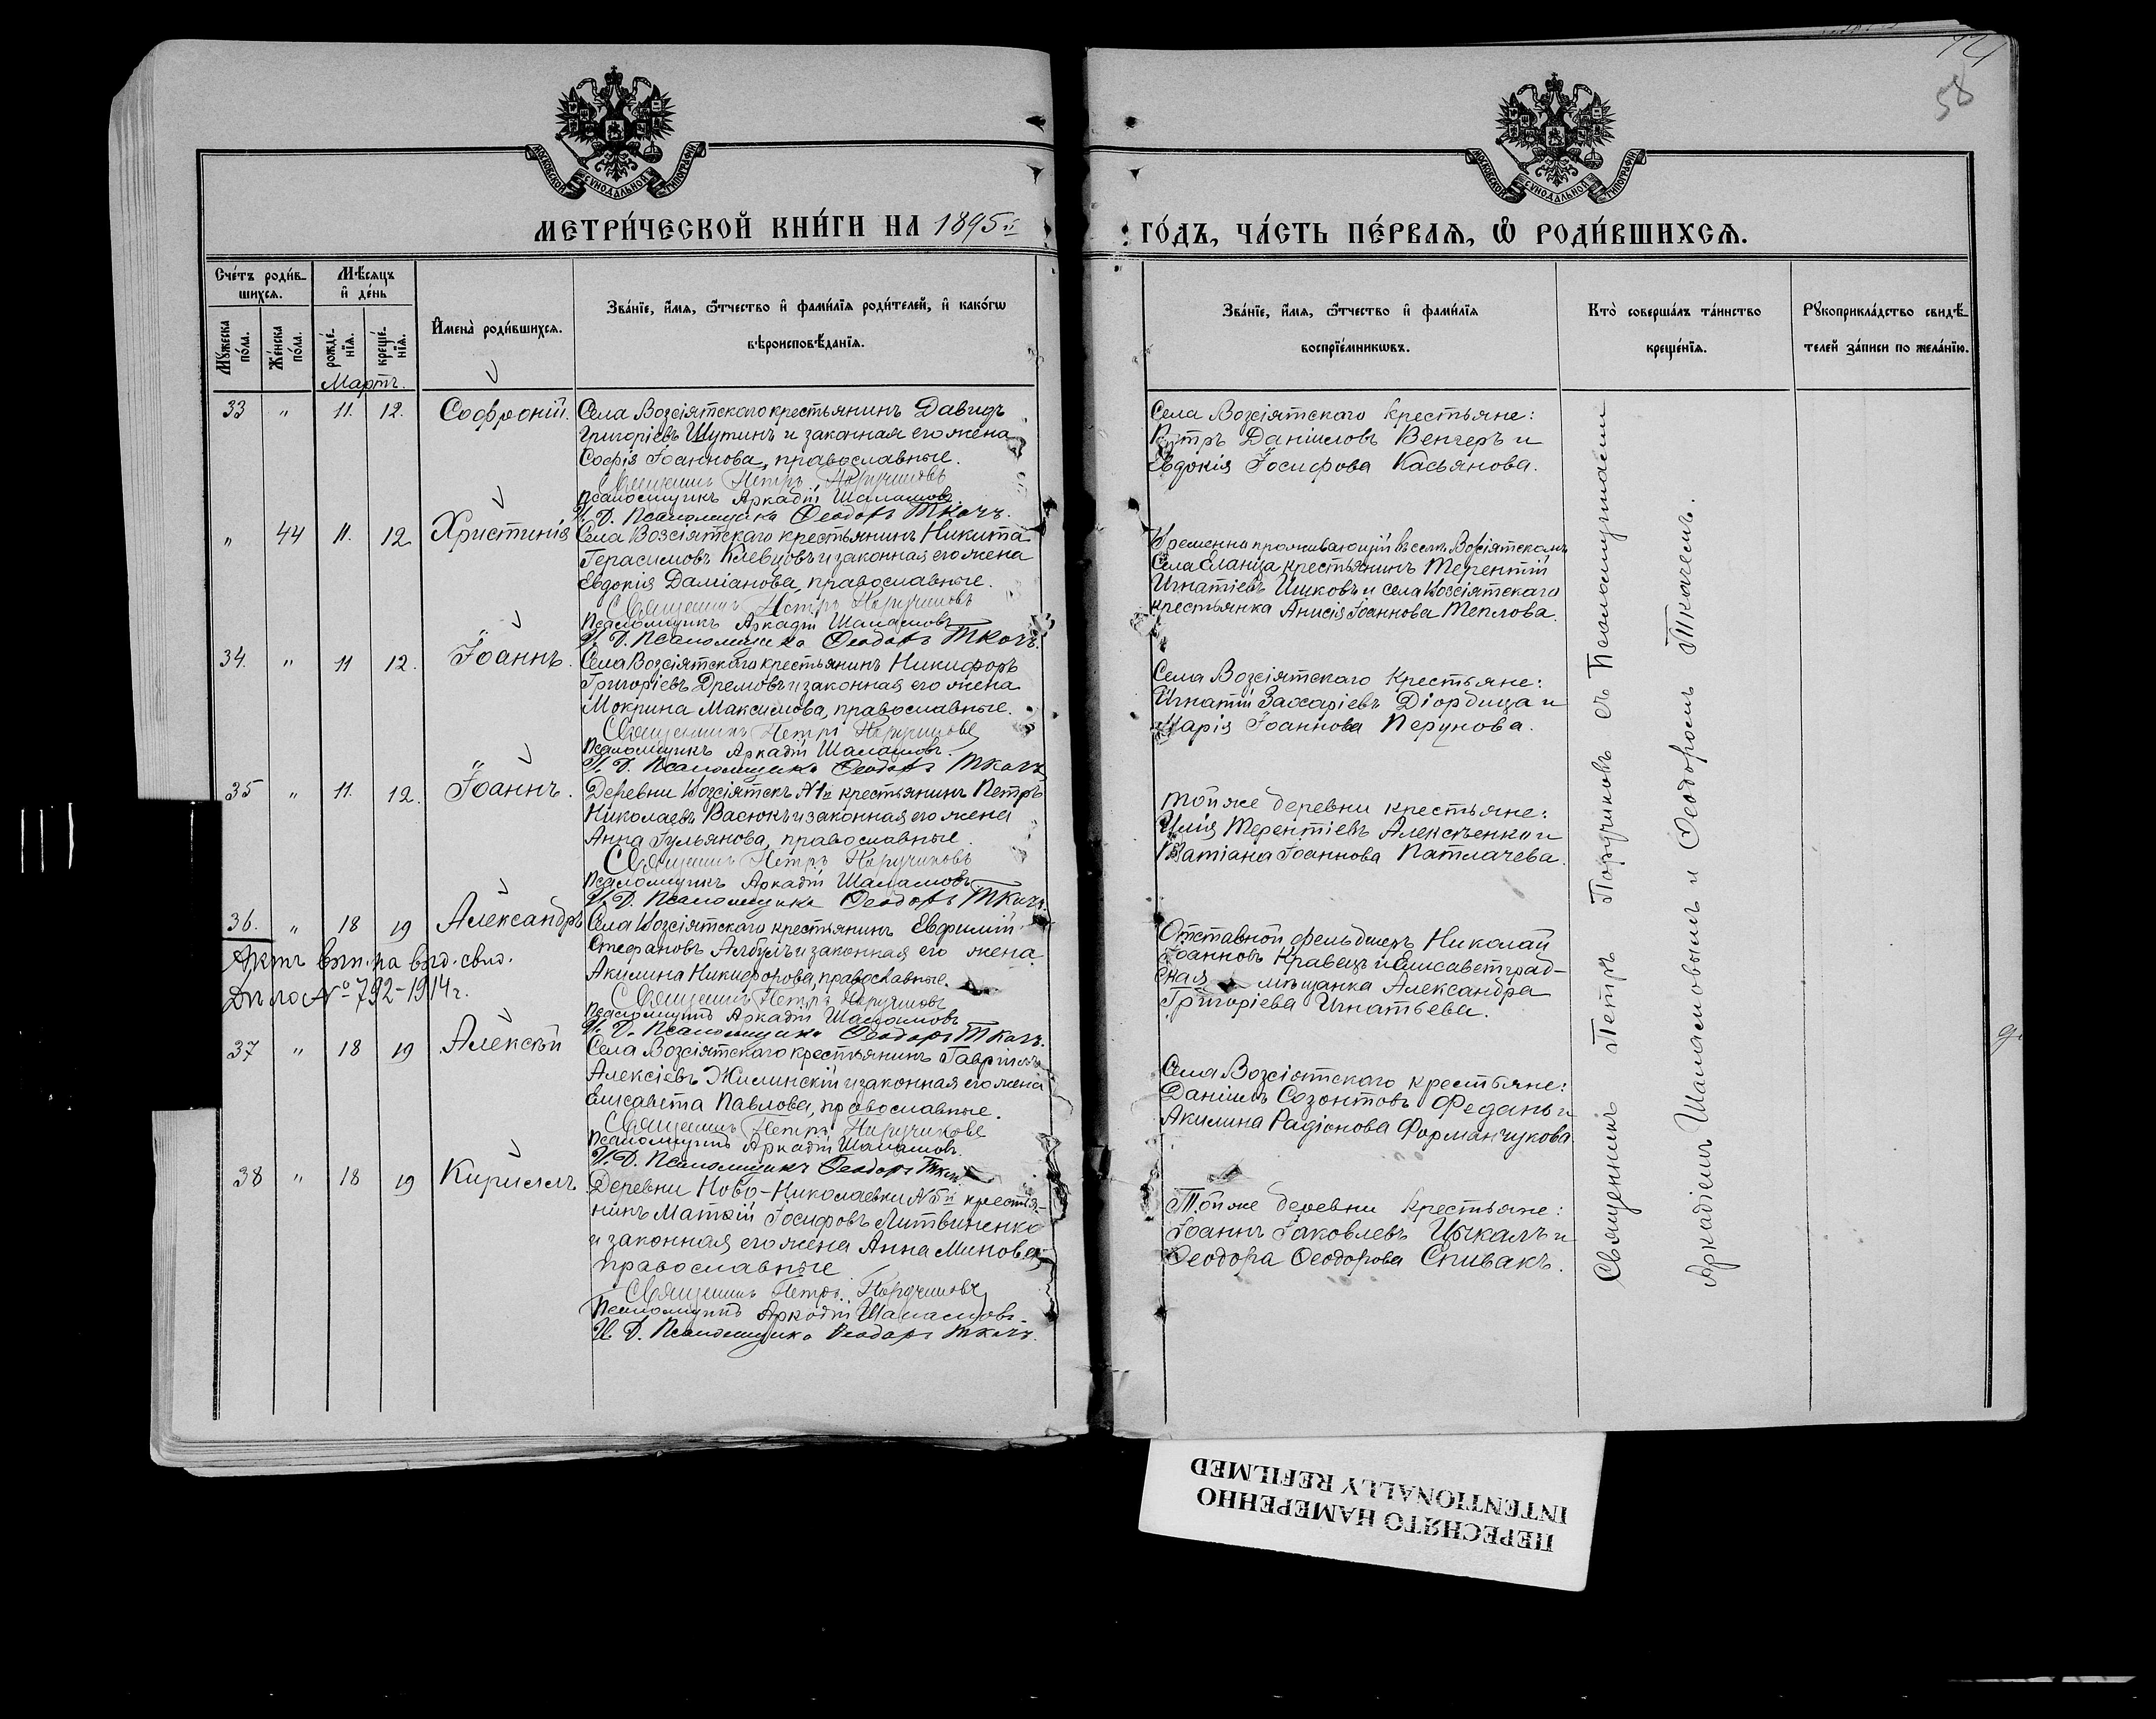 58
МОСКОВСКОЙ СѴНОДАЛЬНОЙ ТИПОГРАФІИ
МОСКОВСКОЙ СѴНОДАЛЬНОЙ ТИПОГРАФІИ
МЕТРИ́ЧЕСКОЙ КНИ́ГИ НА 1895й ГО́ДЪ, ЧА́СТЬ ПЕ́РВАѦ, Ѽ РОДИ́ВШИХСѦ.
Сче́тъ роди́в-
шихсѧ.
Мѣ́сѧцъ
и҆ де́нь
Мꙋ́жеска по́ла.
Же́нска по́ла.
рожде́-
нїѧ.
креще́-
нїѧ.
И҆мена̀ роди́вшихсѧ.
Зва́нїе, и҆́мѧ, ѻ҆́тчество и҆ фами́лїѧ роди́телей, и҆ како́гѡ
вѣроисповѣ́данїѧ.
Зва́нїе, и҆́мѧ, ѻ҆́тчество и҆ фами́лїѧ
воспрїе́мникѡвъ.
Кто̀ соверша́лъ та́инство
креще́нїѧ.
Рꙋкоприкла́дство свидѣ́-
телей за́писи по жела́нїю.
Мартъ.
33 " 11. 12. Софроній. Села Возсіятскаго крестьянинъ Давидъ
Григоріевъ Шутинъ и законная его жена
Софія Іоаннова, православные.
Священникъ Петръ Поручиковъ
Псаломщикъ Аркадій Шаламовъ
И. Д. Псаломщика Ѳеодоръ Ткачъ.
Села Возсіятскаго крестьяне:
Петръ Даніиловъ Венгеръ и
Евдокія Іосифова Касьянова.
" 44 11. 12 Христинія Села Возсіятскаго крестьянинъ Никита
Герасимовъ Клевцовъ и законная его жена
Евдокія Даміанова, православные.
Священникъ Петръ Поручиковъ
Псаломщикъ Аркадій Шаламовъ
И. Д. Псаломщика Ѳеодоръ Ткачъ.
Временно проживающій въ селѣ Возсіятскомъ
Села Еланца крестьянинъ Терентій
Игнатіевъ Ишковъ и села Возсіятскаго
крестьянка Анисія Іоаннова Теплова.
34. " 11 12. Іоаннъ. Села Возсіятскаго крестьянинъ Никифоръ
Григоріевъ Дремовъ и законная его жена
Мокрина Максимова, православные.
Священникъ Петръ Поручиковъ
Псаломщикъ Аркадій Шаламовъ.
И. Д. Псаломщика Ѳеодоръ Ткачъ
Села Возсіятскаго Крестьяне:
Игнатій Захаріевъ Діордица и
Марія Іоаннова Перунова.
35 " 11. 12. Іоаннъ. Деревни Возсіятскъ №1й крестьянинъ Петръ
Николаевъ Васюкъ и законная его жена
Анна Іульянова, православные.
Священникъ Петръ Поручиковъ
Псаломщикъ Аркадій Шаламовъ.
И. Д. Псаломщика Ѳеодоръ Ткачъ.
Той же деревни крестьяне:
Илія Терентіевъ Алексѣенко и
Татіана Іоаннова Патлачева.
36. " 18 19 Александръ Села Возсіятскаго крестьянинъ Евфимій
Стефановъ Албулъ и законная его жена
Акилина Никифорова, православные.
Священникъ Петръ Поручиковъ
Псаломщикъ Аркадій Шаламовъ
И. Д. Псаломщика Ѳеодоръ Ткачъ.
Отставной фельдшеръ Николай
Іоанновъ Кравецъ и Елисаветград-
ская мѣщанка Александра
Григоріева Игнатьева.
Актъ вып. на выд. свид.
Дѣло № 792-1914г.
37 " 18 19 Алексѣй Села Возсіятскаго крестьянинъ Гавріилъ
Алексіевъ Жилинскій и законная его жена
Елисавета Павлова, православные.
Священникъ Петръ Поручиковъ
Псаломщикъ Аркадій Шаламовъ.
И. Д. Псаломщика Ѳеодоръ Ткачъ
Села Возсіятскаго крестьяне:
Даніилъ Созонтовъ Федань и
Акилина Радіонова Форманчукова.
38 " 18 19 Кириллъ Деревни Ново-Николаевки №5й крестья-
нинъ Матѳій Іосифовъ Литвиненко
и законная его жена Анна Минова,
православные
Священникъ Петръ Поручиковъ
Псаломщикъ Аркадій Шаламовъ.
И. Д. Псаломщика Ѳеодоръ Ткачъ.
Той же деревни крестьяне:
Іоаннъ Іаковлевъ Цыкалъ и
Ѳеодора Ѳеодорова Спивакъ.
Священникъ Петръ Поручиковъ съ Псаломщиками
Аркадіемъ Шаламовымъ и Ѳеодоромъ Ткачемъ.
ПЕРЕСНЯТО НАМЕРЕННО
INTENTIONALLY REFILMED